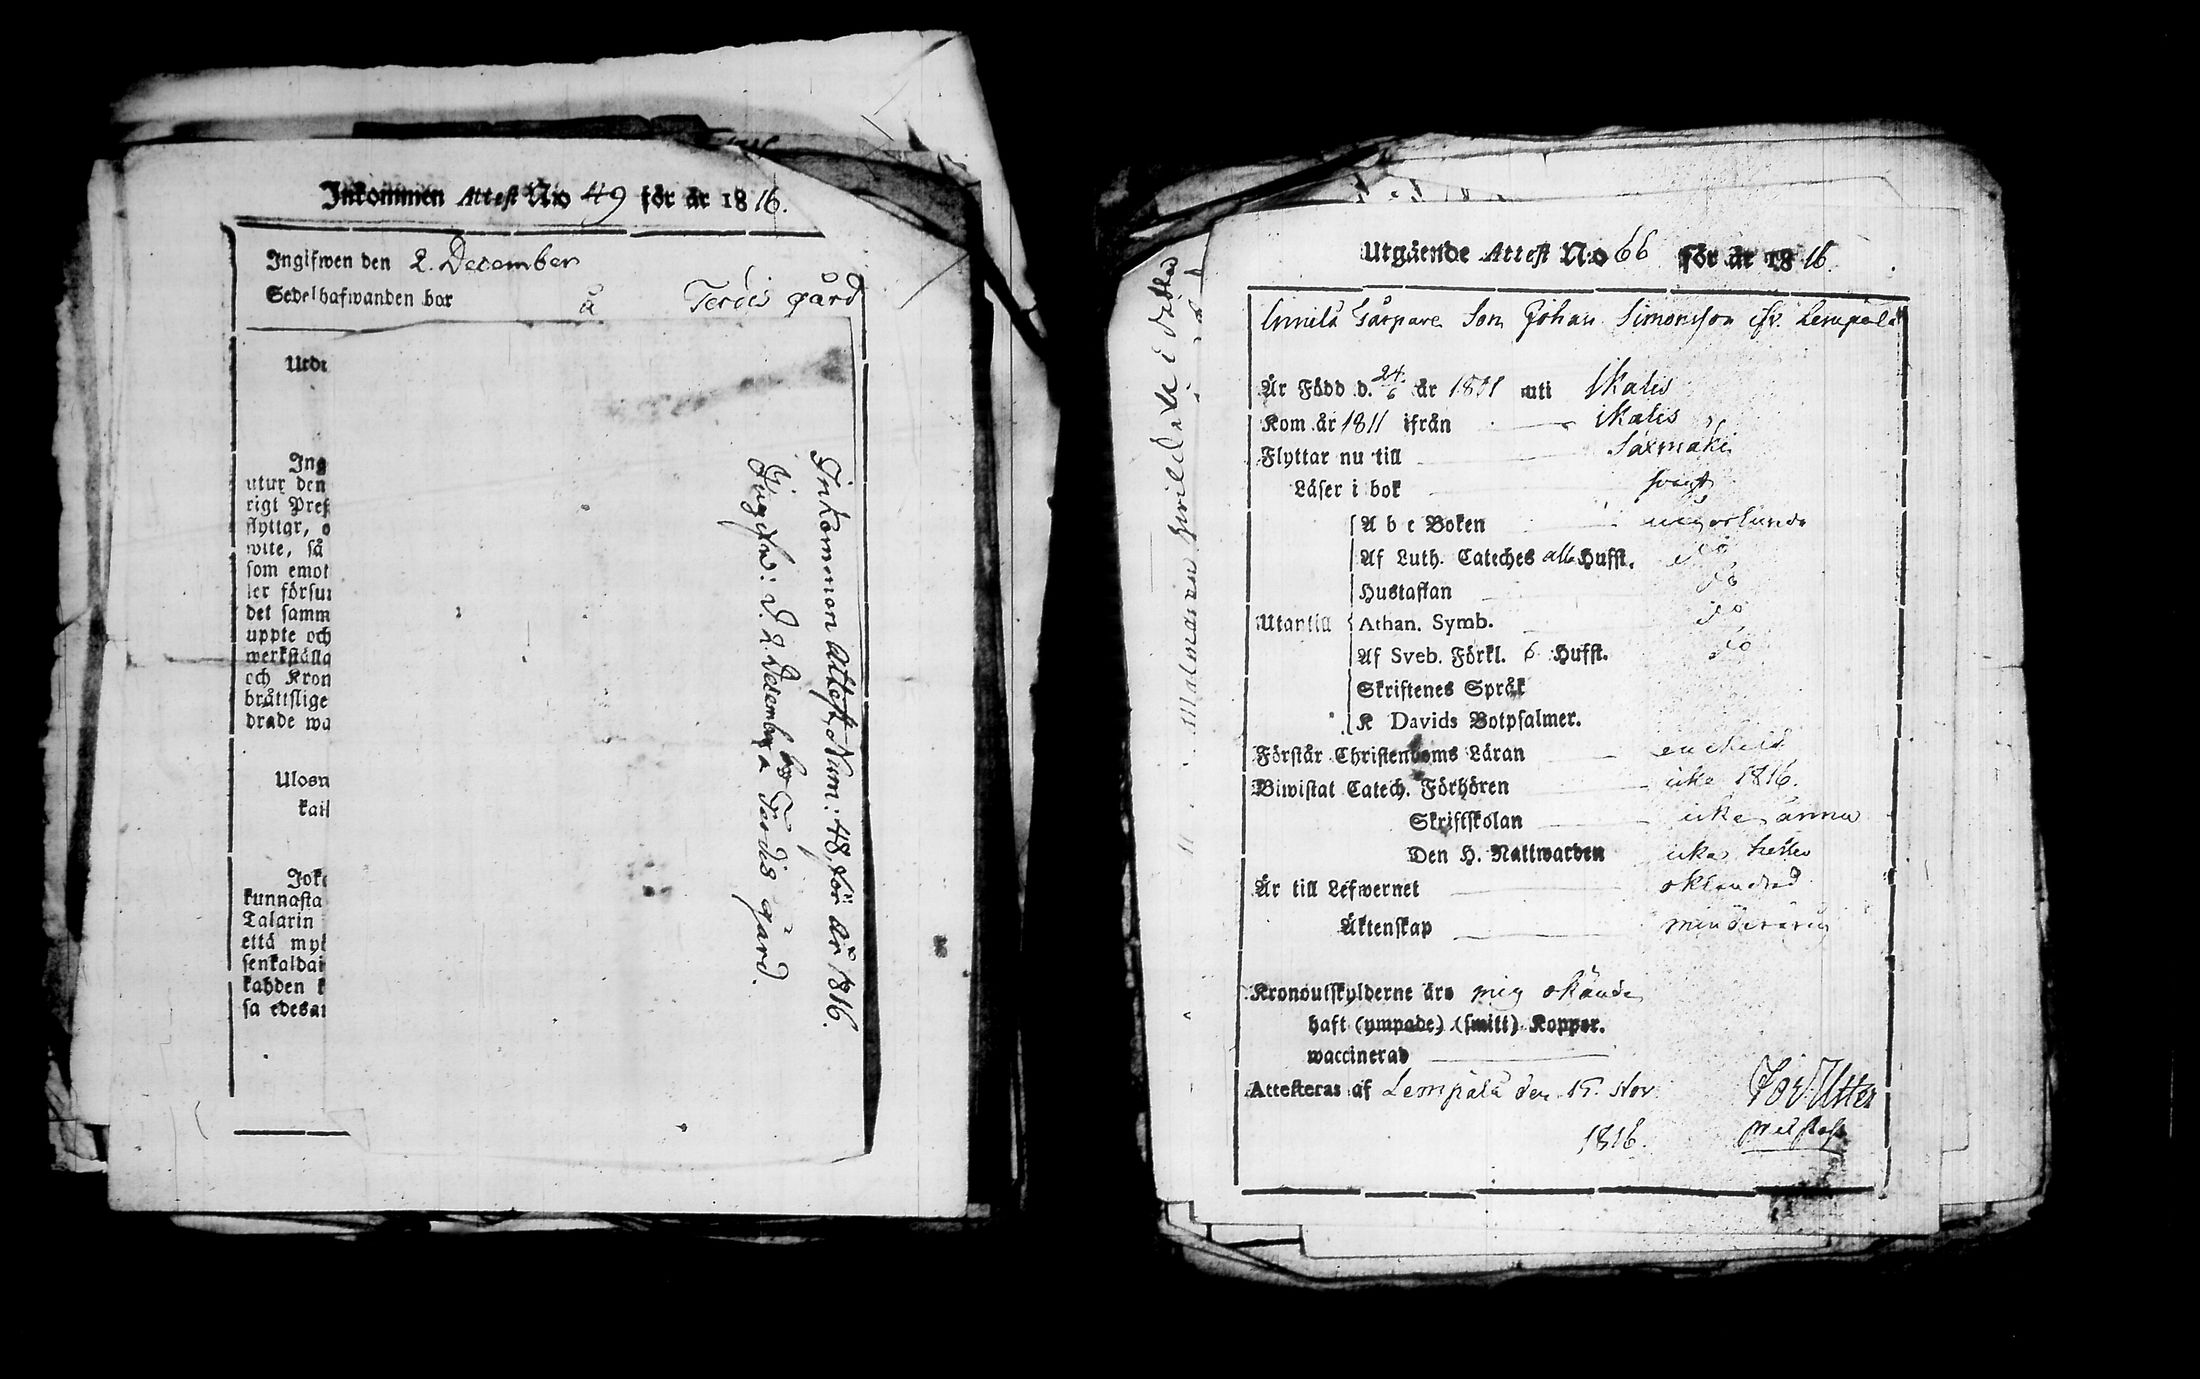 Inkommen Attest No 49 för år 1816.
Ingifwen den 2. December
Sedelhafwanden bor å Terois gård
Utdr
Ing
utur den
rigt Pres
flyttar, o
wite, så
som emot
ler försur
det samm
uppte och
werkställa
och Kron
bråttslige
drade wa
Ulosn
kail
Joka
kunnasta
Talarin
että myl
senkaldai
kahden k
sa edesan
Inkommen Attest, Num: 48, för år 1816.
Ingifv: d. 2. December bor å Terois gård.
Utgående Attest No 66 för år 1816.
Son Johan Simonsson ifr. Lempälä
År Född d. 24/6 år 1801 uti Ikalis
Kom år 1811 ifrån Ikalis
Flyttar nu till Saxmäki
Läser i bok svagt
A b c Boken
Af Luth. Cateches alla Hufst. do
Hustaflan do
Utantill Athan. Symb. do
Af Sveb. Förkl. 6 Hufst. do
Skriftenes Språk
K Davids Botpsalmer.
Förstår Christendoms Läran enskild
Biwistat Catech. Förhören icke 1816.
Skriftskolan icke ännu
Den H. Nattwarden icke heller
År till Lefwernet oklandrad
Äktenskap minderårig
Kronoutskylderne äro mig okände
haft (ympade) (smitt) Koppor.
waccinerad
Attesteras af Lempälä den 15. Nov.
1816.